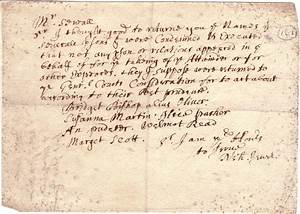 Mr. Sewall
Sr. I thought good to returne you ye Names of
severale psons yt were Condemned & Executed
that not any pson or relations appeared in ye
behalf of for ye takeing of ye Attainder or for
other Expences, they I suppose were returned to
ye Genll Court Consideration for to act about
according to their best prudenc
Bridget Bishop alius Oliver
Susanna Martin. Alice Parker
An pudeter. Welmot Read
Marget Scott. Sr I am ye
to Serve
Nich